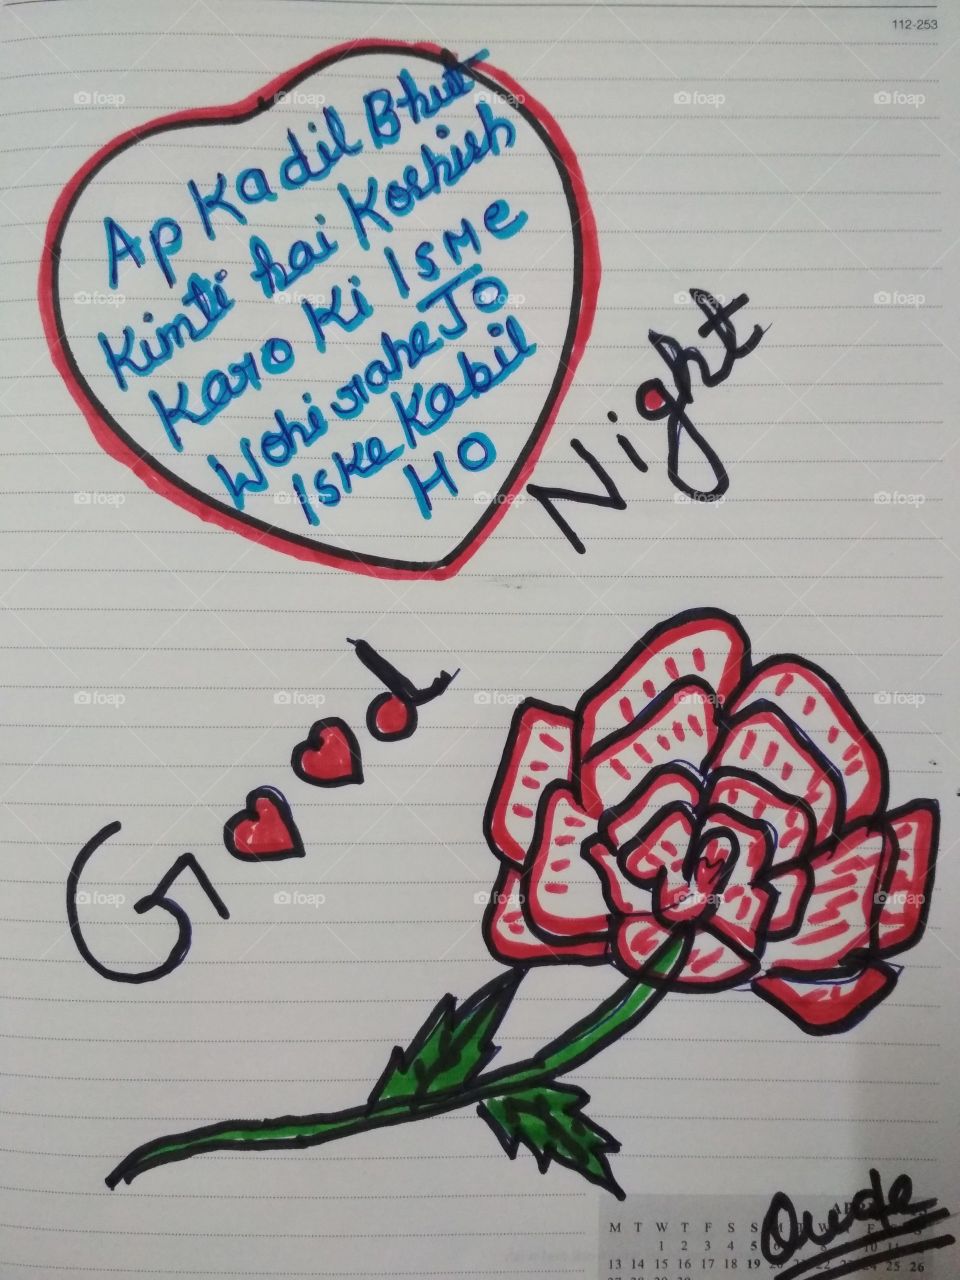 112-253
Ap Ka dil Bhut
Kimti hai Koshish
Karo Ki IsMe
Wohi rahe JO
Iske Kabil
HO
Night
Good
M T W T F S S
1 2 3 4 5
13 14 15 16 17 18 19
25 26